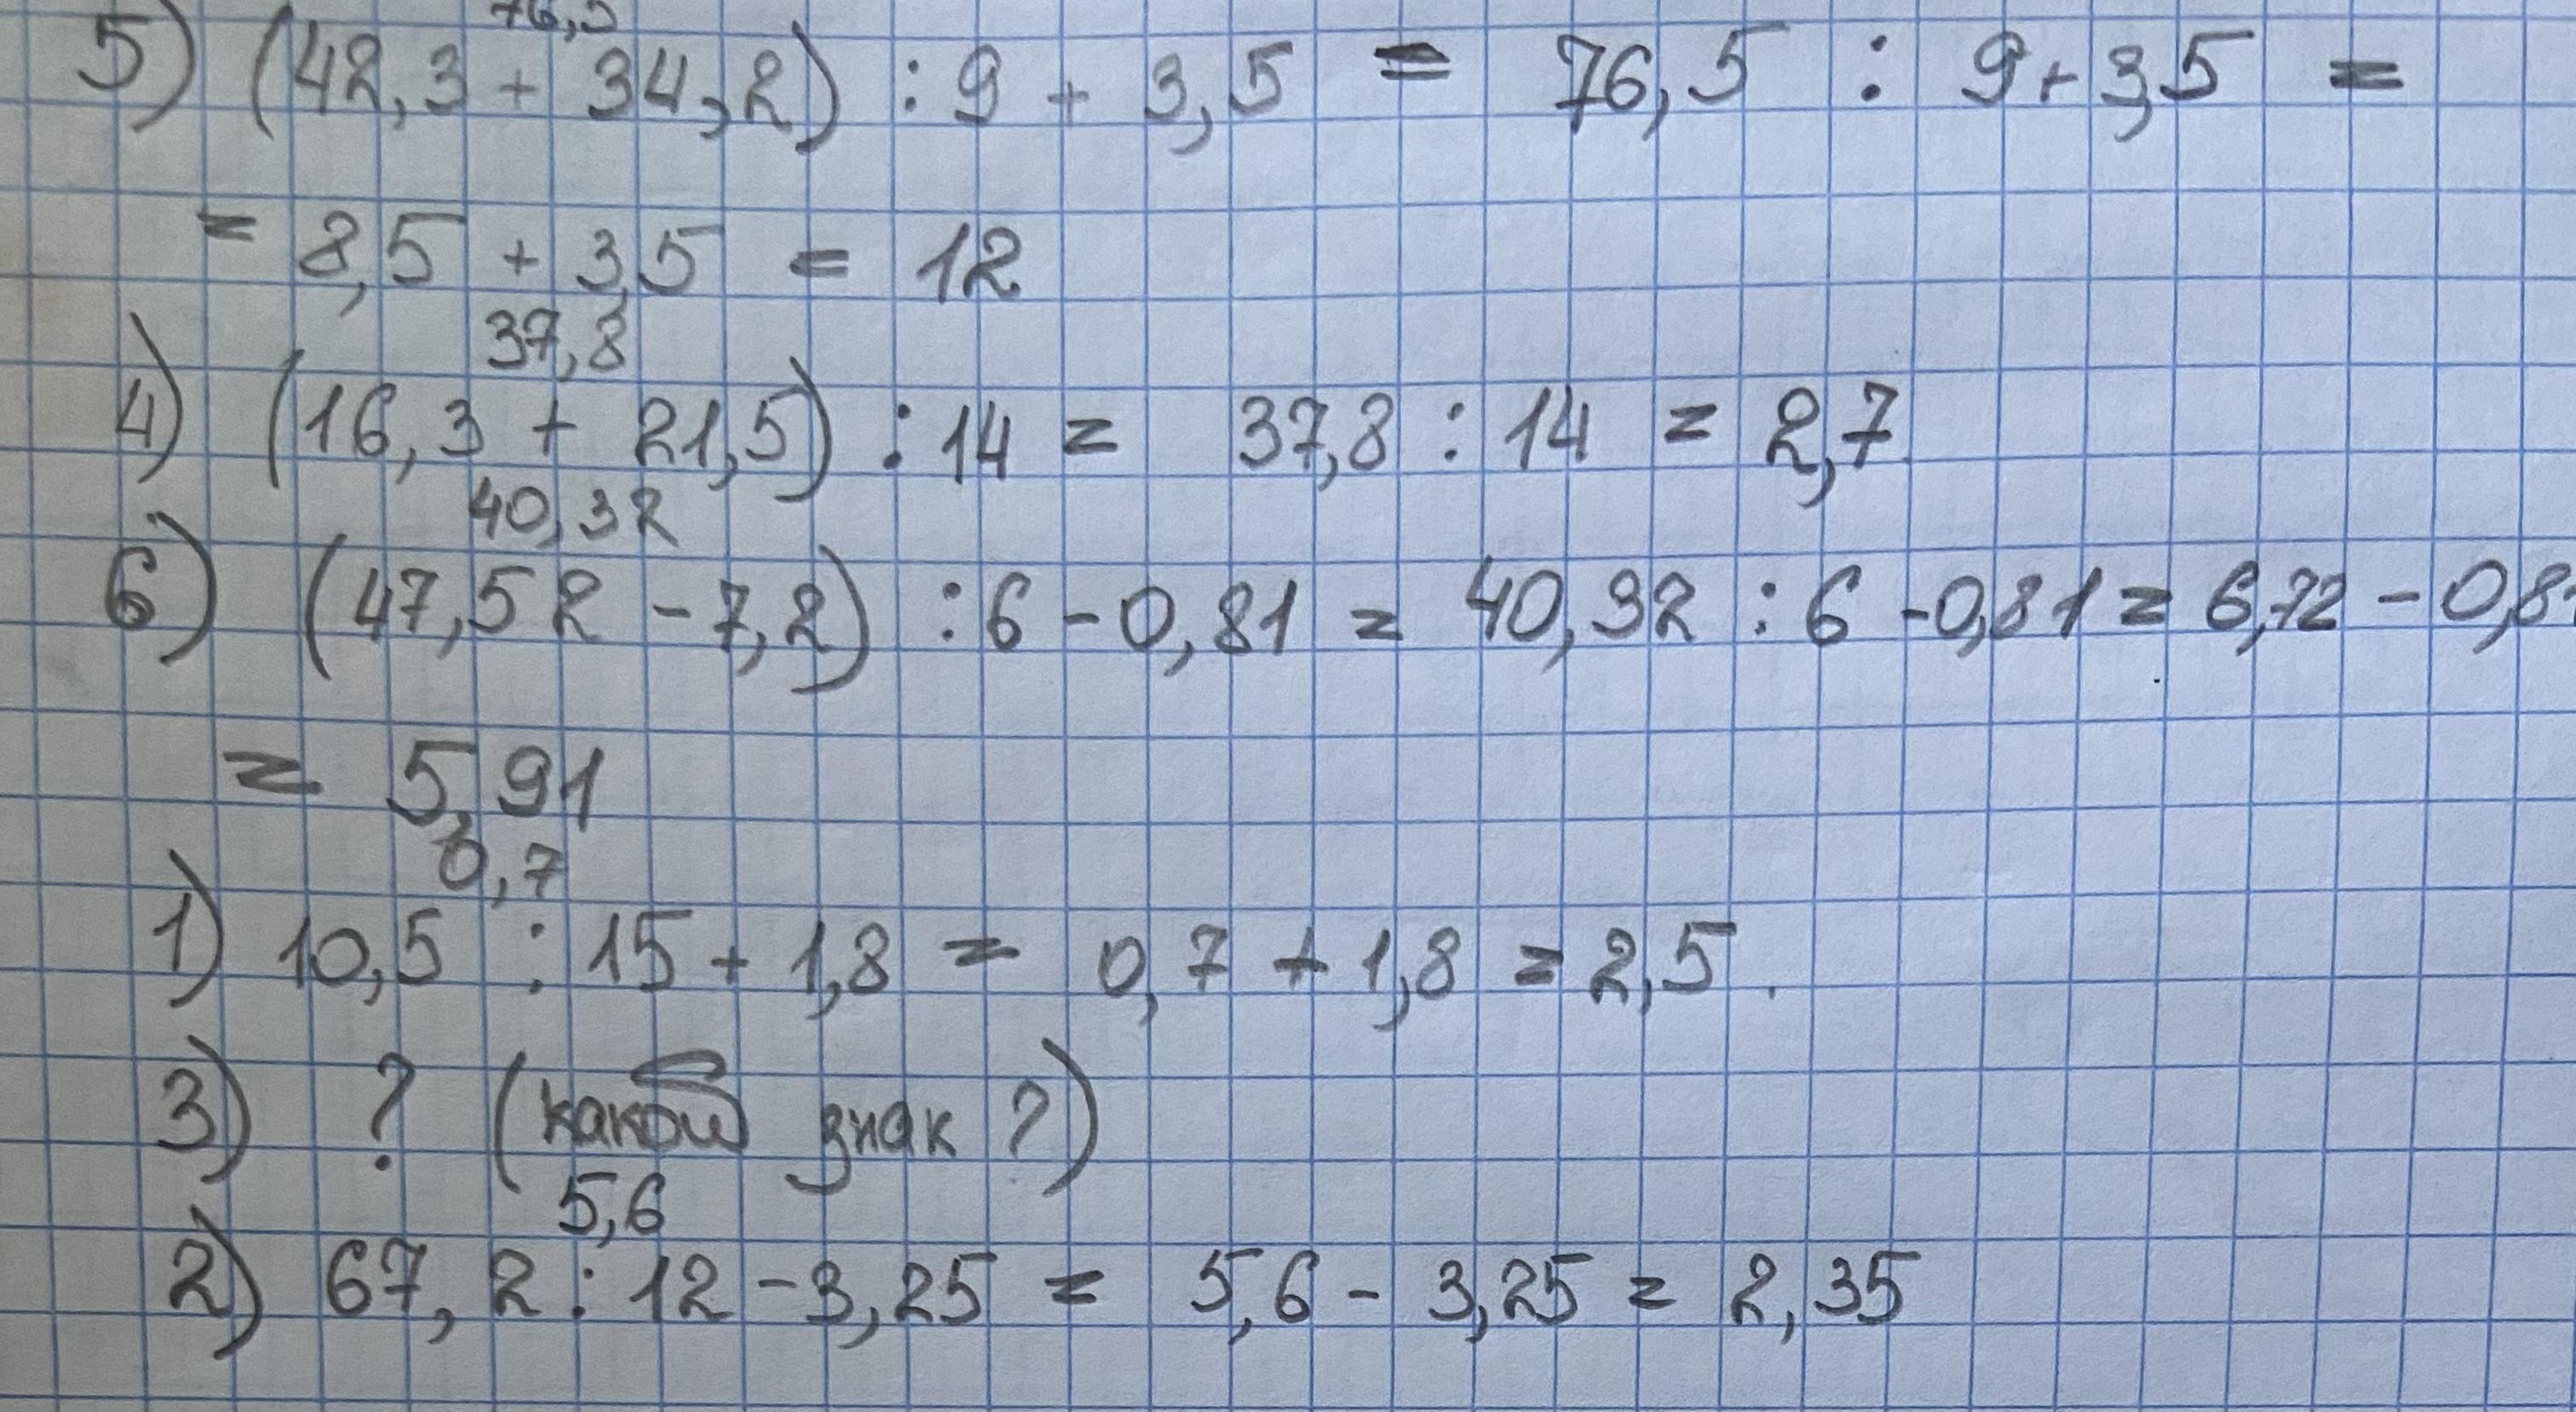 76,5
5) (42,3 + 34,2) : 9 + 3,5 = 76,5 : 9 + 3,5 =
= 8,5 + 3,5 = 12
37,8
4) (16,3 + 21,5) : 14 = 37,8 : 14 = 2,7
40,32
6) (47,52 - 7,2) : 6 - 0,81 = 40,32 : 6 - 0,81 = 6,72 - 0,81
= 5,91
0,7
1) 10,5 : 15 + 1,8 = 0,7 + 1,8 = 2,5.
3) ? (какой знак ?)
5,6
2) 67,2 : 12 - 3,25 = 5,6 - 3,25 = 2,35